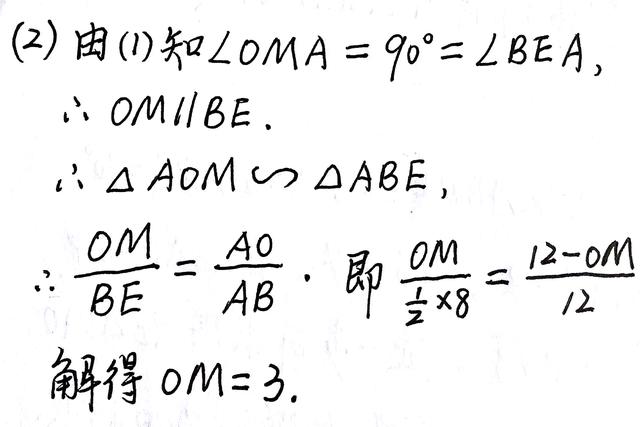 (2) 由(1)知∠OMA = 90° = ∠BEA,
∴ OM∥BE.
∴ △AOM∽△ABE,
∴ OM/BE = AO/AB. 即 OM/(1/2×8) = (12-OM)/12
解得 OM=3.